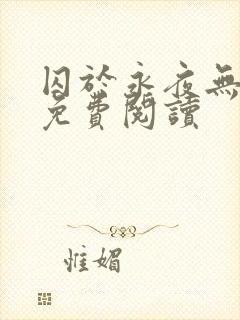 囚於永夜無
免費閱讀
惟媚